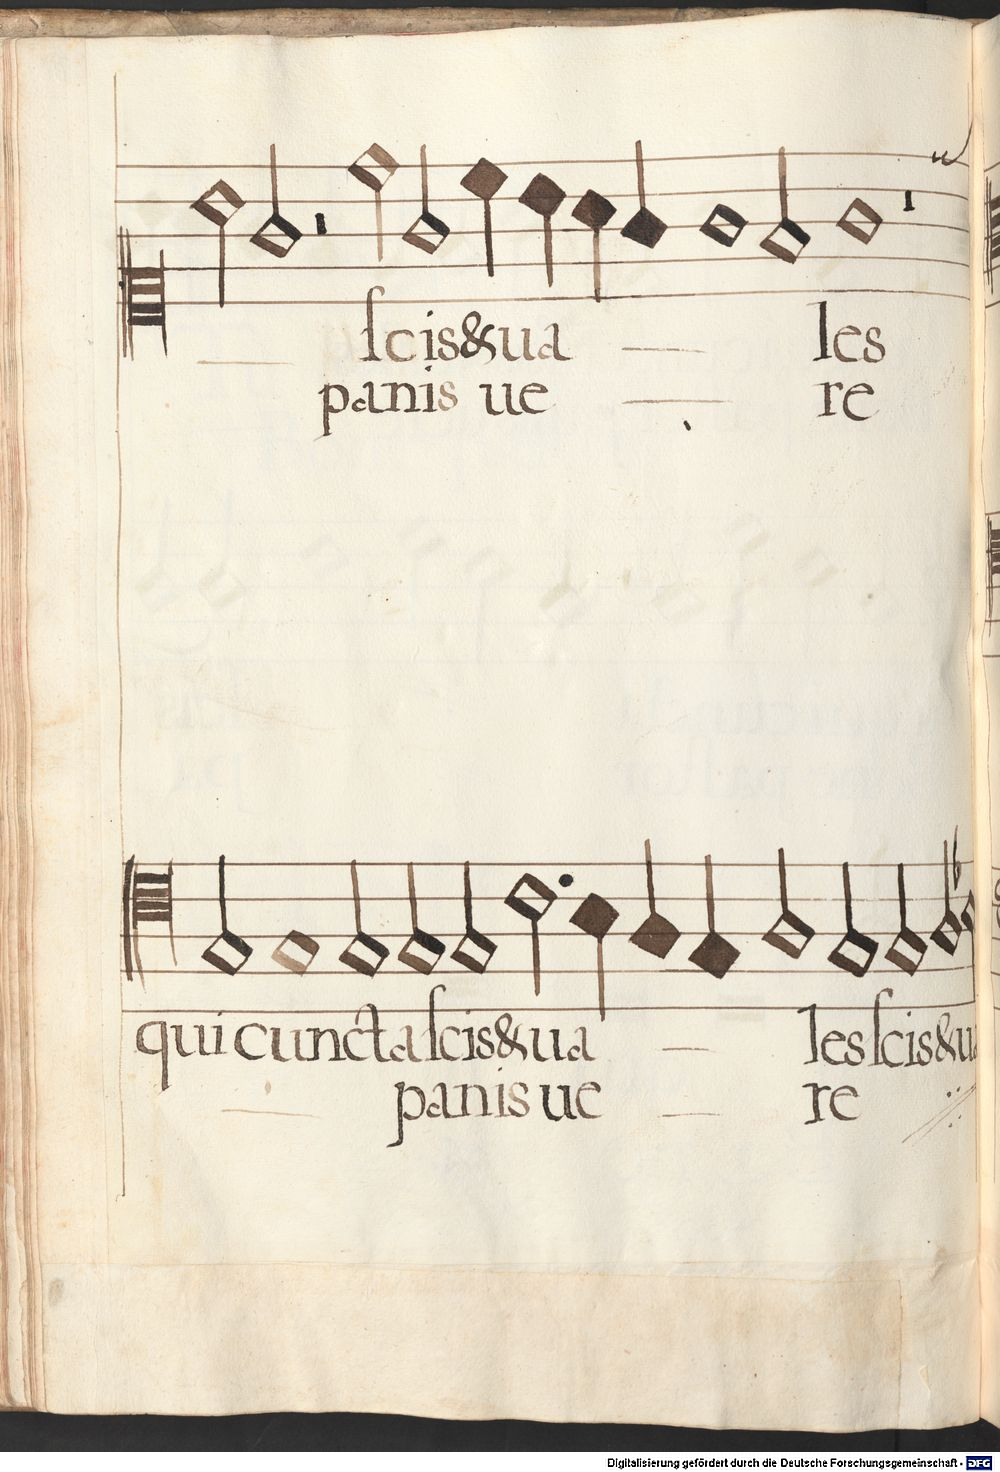 scis & ua les
panis ue re
qui cuncta scis & ua les scis & ua
panis ue re
Digitalisierung gefördert durch die Deutsche Forschungsgemeinschaft - DFG